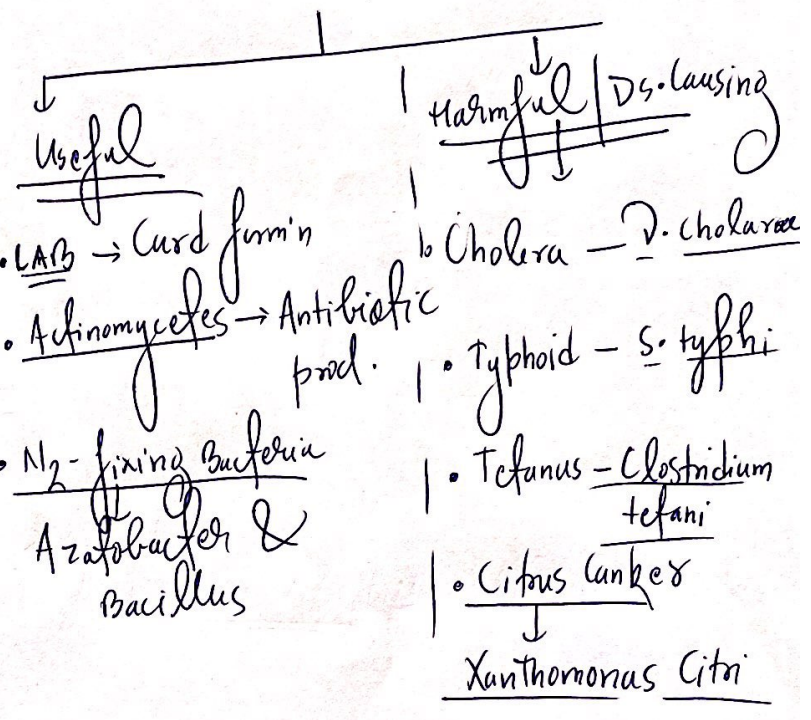 Useful
• LAB → Curd form'n
• Actinomycetes → Antibiotic
prod.
• N2-fixing Bacteria
Azatobacter &
Bacillus
Harmful | Ds. Causing
• Cholera – V. cholarae
• Typhoid – S. typhi
• Tetanus – Clostridium
tetani
• Citrus Canker
Xanthomonas Citri